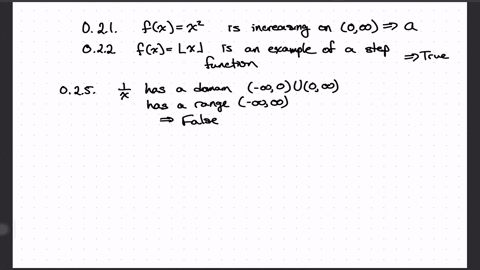 0.2.1. f(x) = x² is increasing on (0,∞) ⇒ a
0.2.2 f(x) = ⌊x⌋ is an example of a step
function ⇒ True
0.2.5. 1/x has a doman (-∞,0)∪(0,∞)
has a range (-∞,∞)
⇒ False